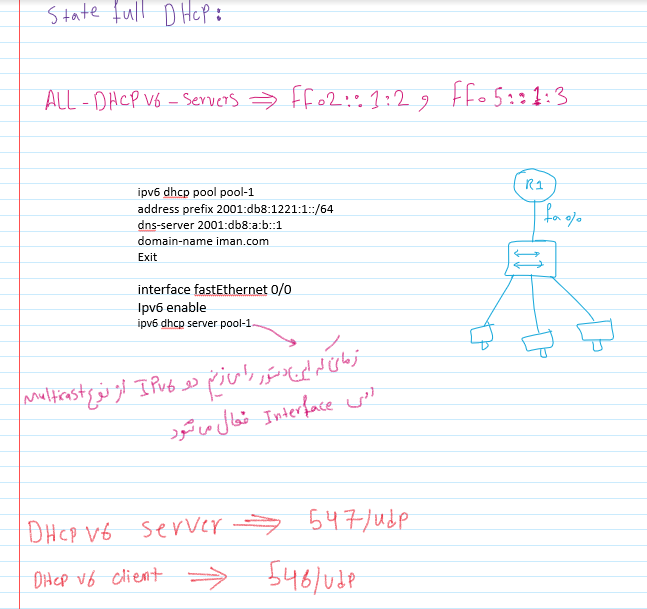 State full DHCP:
ALL-DHCP V6-Servers ⇒ FF02::1:2 , FF05::1:3
ipv6 dhcp pool pool-1
address prefix 2001:db8:1221:1::/64
dns-server 2001:db8:a:b::1
domain-name iman.com
Exit
interface fastEthernet 0/0
Ipv6 enable
ipv6 dhcp server pool-1
R1
fa 0/0
زمانی که این دستور را می زنیم دو IPv6 از نوع Multicast
این Interface فعال می شود
DHCP V6 Server ⇒ 547/UDP
DHCP V6 client ⇒ 546/UDP